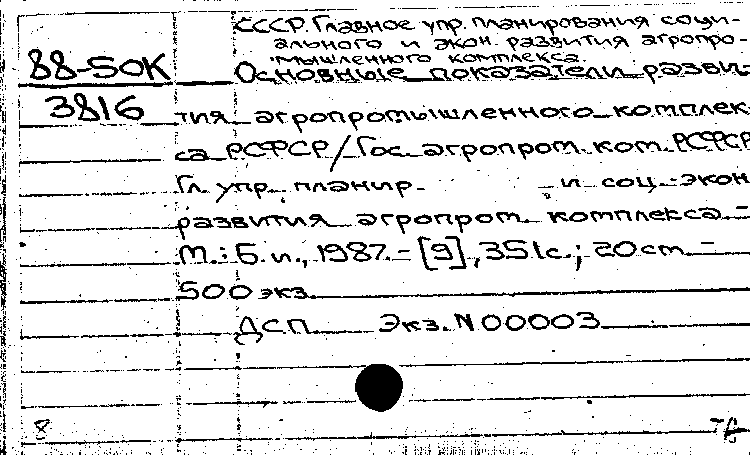 СССР. Главное упр. планирования соци-
ального и экон. развития агропро-
мышленного комплекса.
88-50К Основные показатели разви-
3816 тия агропромышленного комплек
са РСФСР/Гос. агропром. ком. РСФСР
Гл. упр. планир. и соц.-экон
развития агропром. комплекса. -
М.: Б. и., 1987. - [9], 351с.; 20см. -
500 экз.
ДСП Экз. N 00003
8